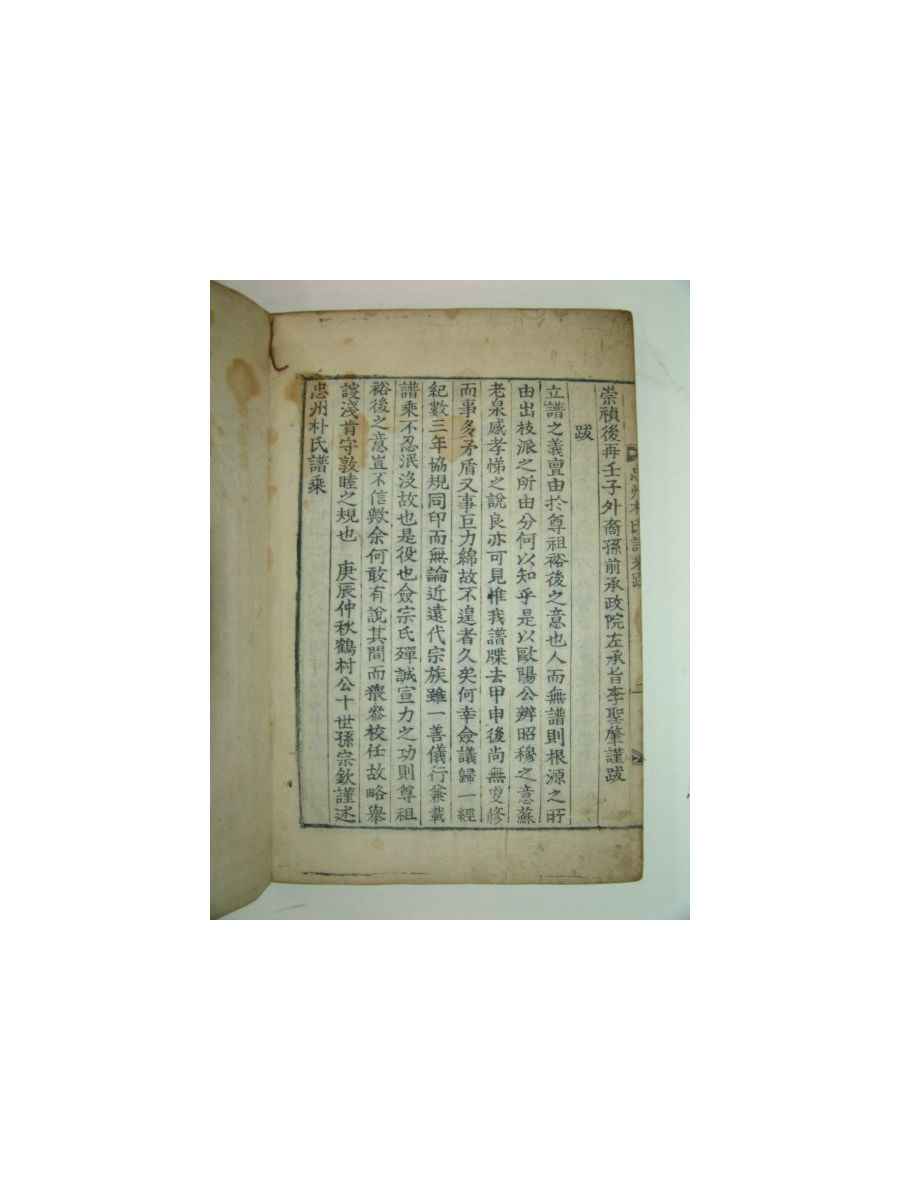 忠州朴氏譜乘跋 二
崇禎後再壬子外裔孫前承政院左承旨李聖肇謹跋
跋
立譜之義亶由於尊祖裕後之意也人而無譜則根源之所
由出枝派之所由分何以知乎是以歐陽公辨昭穆之意蘇
老泉感孝悌之說良亦可見惟我譜牒去甲申後尚無更修
而事多矛盾又事巨力綿故不遑者久矣何幸僉議歸一經
紀數三年協規同印而無論近遠代宗族雖一善儀行兼載
譜乘不忍泯沒故也是役也僉宗氏殫誠宣力之功則尊祖
裕後之意豈不信歟余何敢有說其間而猥參校任故略舉
諼淺肯守敦睦之規也 庚辰仲秋鶴村公十世孫宗欽謹述
忠州朴氏譜乘